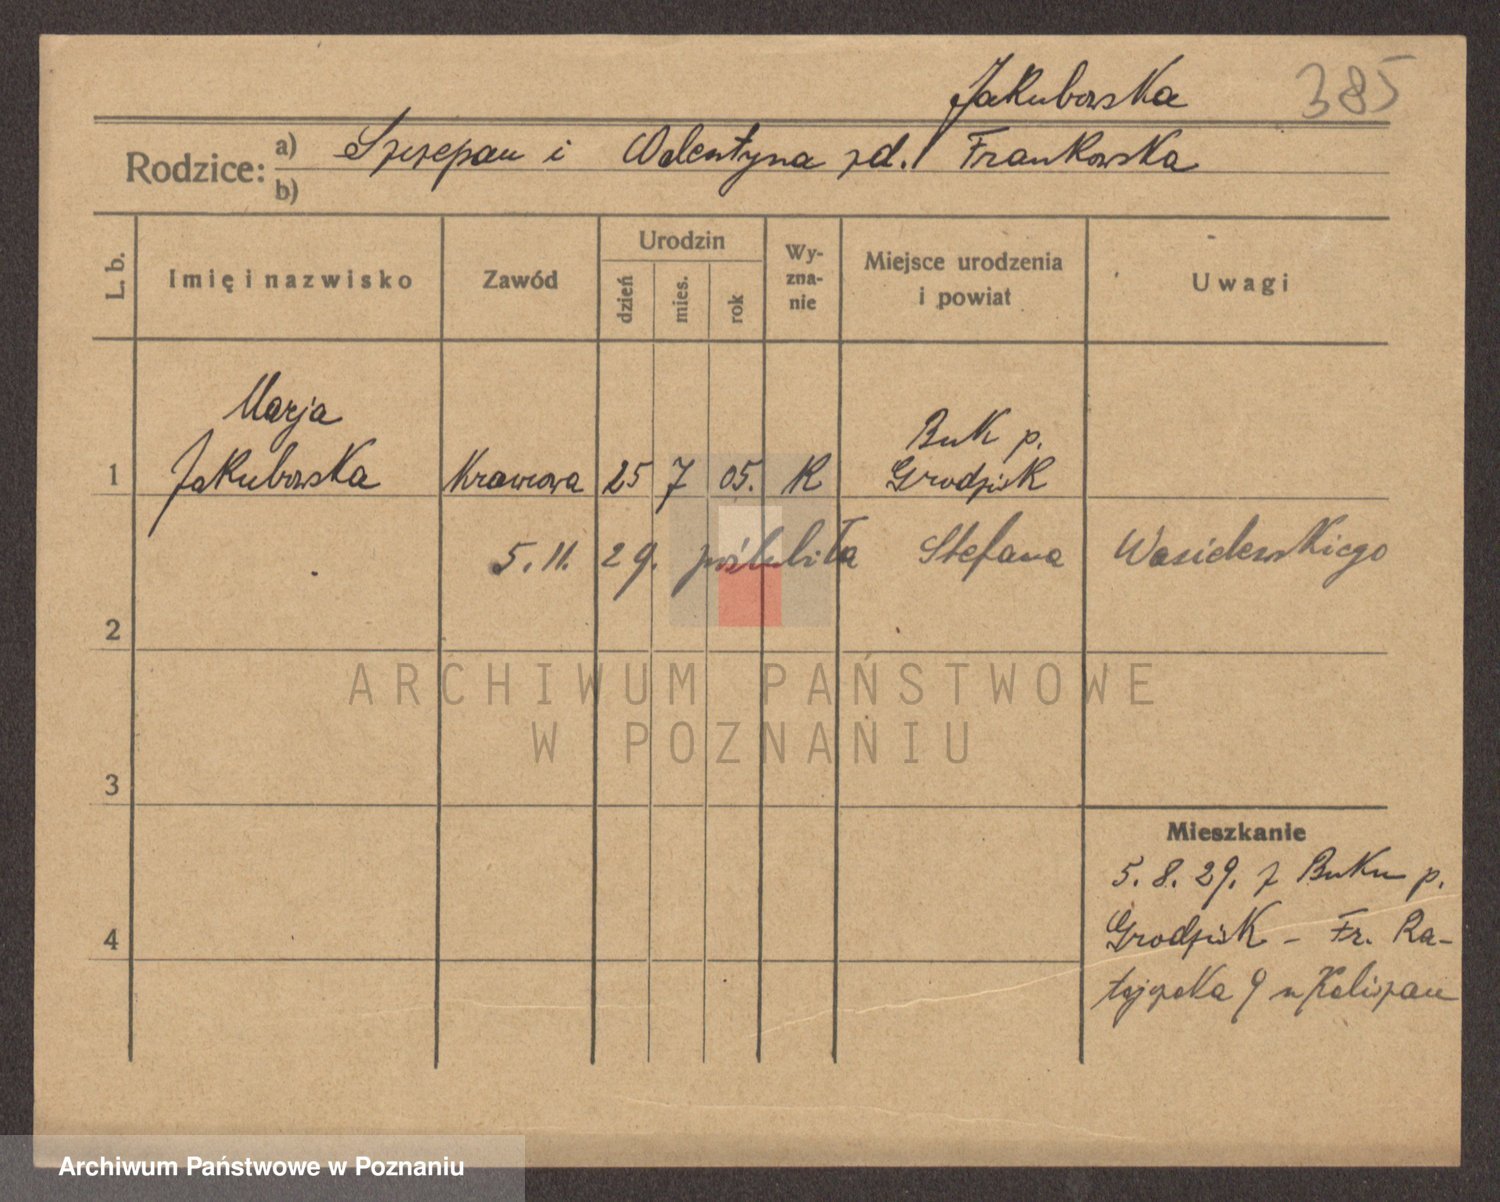 Jakubowska
385
Rodzice: a) Szczepan i Walentyna zd. Frankowska
b)
L. b.
Imię i nazwisko
Zawód
Urodzin
dzień
mies.
rok
Wy-
zna-
nie
Miejsce urodzenia
i powiat
Uwagi
Marja
Jakubowska
1
Krawcowa
25 7 05.
K
Buk p.
Grodzisk
5.11. 29. poślubiła Stefana Wasielewskiego
2
3
4
Mieszkanie
5.8.29. z Buku p.
Grodzisk - Fr. Ra-
tajczaka 9 u Kaliszan
ARCHIWUM PAŃSTWOWE
W POZNANIU
Archiwum Państwowe w Poznaniu